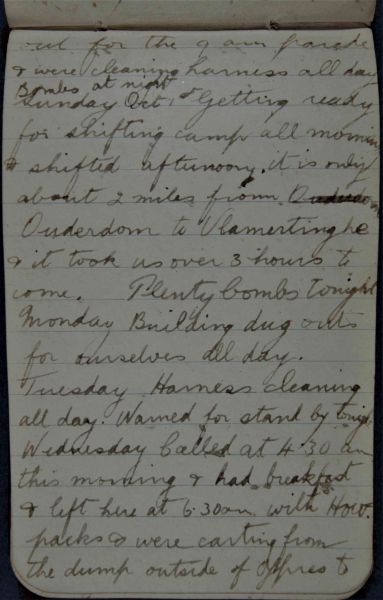 out for the 9 am parade
& were cleaning harness all day
Bombs at night
Sunday Oct 1st Getting ready
for shifting camp all mornin
& shifted afternoon, it is only
about 2 miles from
Ouderdom to Vlamertinghe
& it took us over 3 hours to
come. Plenty bombs tonight
Monday Building dug outs
for ourselves all day.
Tuesday Harness cleaning
all day. Warned for stand by tonigh
Wednesday Called at 4.30 am
this morning & had breakfast
& left here at 6.30am with How.
packs & were carting from
the dump outside of Ypres to